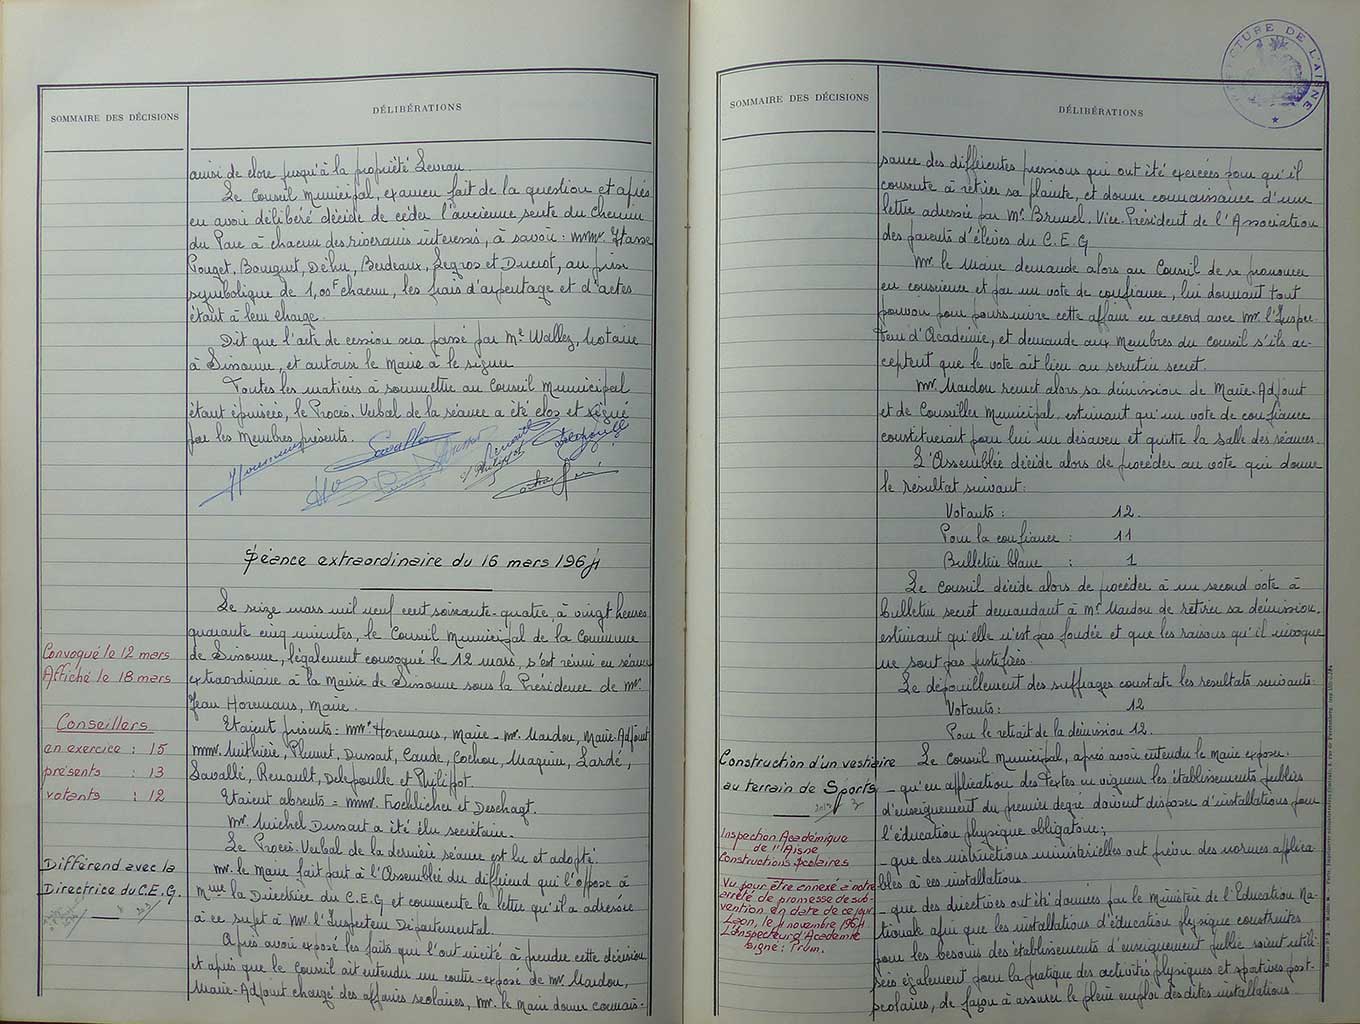 SOMMAIRE DES DÉCISIONS
DÉLIBÉRATIONS
ainsi de clore jusqu'à la propriété Levrau
Le Conseil Municipal, examen fait de la question et après
en avoir délibéré décide de céder l'ancienne sente du Chemin
du Parc à chacun des riverains intéressés, à savoir : MMr. Hasse
Pouget, Bouquet, Déhu, Berdeaux, Legros et Ducrot, au prix
symbolique de 1,00F chacun, les frais d'arpentage et d'actes
étant à leur charge.
Dit que l'acte de cession sera passé par Me Wallez, Notaire
à Sissonne, et autorise le Maire à le signer
Toutes les matières à soumettre au Conseil Municipal
étant épuisées, le Procès-Verbal de la séance a été clos et signé
par les Membres présents.
Séance extraordinaire du 16 mars 1964
Le seize mars mil neuf cent soixante-quatre, à vingt heures
quarante cinq minutes, le Conseil Municipal de la Commune
de Sissonne, légalement convoqué le 12 mars, s'est réuni en séance
extraordinaire à la Mairie de Sissonne sous la Présidence de Mr.
Jean Horemans, Maire.
Convoqué le 12 mars
Affiché le 18 mars
Conseillers
en exercice : 15
présents : 13
votants : 12
Etaient présents : MMr Horemans, Maire - Mr. Mardou, Maire-Adjoint
MMr. Mithière, Plumet, Dussart, Caude, Cochou, Maquin, Lardé,
Lavallé, Renault, Delepoulle et Philippot.
Etaient absents = MMr. Froehlicher et Deschagt.
Mr. Michel Dussart a été élu secrétaire.
Le Procès-Verbal de la dernière séance est lu et adopté.
Différend avec la
Directrice du C.E.G.
Mr. le Maire fait part à l'Assemblée du différend qui l'oppose à
Mme la Directrice du C.E.G et commente la lettre qu'il a adressée
à ce sujet à Mr. l'Inspecteur Départemental.
Après avoir exposé les faits qui l'ont incité à prendre cette décision
et après que le Conseil ait entendu un contre-exposé de Mr Mardou,
Maire-Adjoint chargé des affaires scolaires, Mr. le Maire donne connais-
PRÉFECTURE DE L'AISNE
SOMMAIRE DES DÉCISIONS
DÉLIBÉRATIONS
sance des différentes pressions qui ont été exercées pour qu'il
consente à retirer sa plainte, et donne connaissance d'une
lettre adressée par Mr. Brunel, Vice-Président de l'Association
des parents d'élèves du C.E.G
Mr. le Maire demande alors au Conseil de se prononcer
en conscience et par un vote de confiance, lui donnant tout
pouvoir pour poursuivre cette affaire en accord avec Mr. l'Inspec-
teur d'Académie, et demande aux Membres du Conseil s'ils ac-
ceptent que le vote ait lieu au scrutin secret.
Mr. Mardou remet alors sa démission de Maire-Adjoint
et de Conseiller Municipal, estimant qu'un vote de confiance
constituerait pour lui un désaveu et quitte la salle des séances.
L'Assemblée décide alors de procéder au vote qui donne
le résultat suivant :
Votants : 12.
Pour la confiance : 11
Bulletin blanc : 1
Le Conseil décide alors de procéder à un second vote à
bulletin secret demandant à Mr Mardou de retirer sa démission,
estimant qu'elle n'est pas fondée et que les raisons qu'il invoque
ne sont pas justifiées.
Le dépouillement des suffrages constate les résultats suivants :
Votants : 12
Pour le retrait de la démission 12.
Construction d'un vestiaire
au terrain de Sports
Le Conseil Municipal, après avoir entendu le Maire exposer :
- qu'en application des Textes en vigueur les établissements publics
d'enseignement du premier degré doivent disposer d'installations pour
l'éducation physique obligatoire ;
- que des instructions ministérielles ont prévu des normes applica-
bles à ces installations.
- que des directives ont été données par le Ministère de l'Education Na-
tionale afin que les installations d'éducation physique construites
pour les besoins des établissements d'enseignement public soient utili-
sées également pour la pratique des activités physiques et sportives post-
scolaires, de façon à assurer le plein emploi des dites installations.
Inspection Académique
de l'Aisne
Constructions Scolaires
Vu pour être annexé à notre
arrêté de promesse de sub-
vention en date de ce jour
Laon, le 4 novembre 1964
L'Inspecteur d'Académie
Signé : Prum.